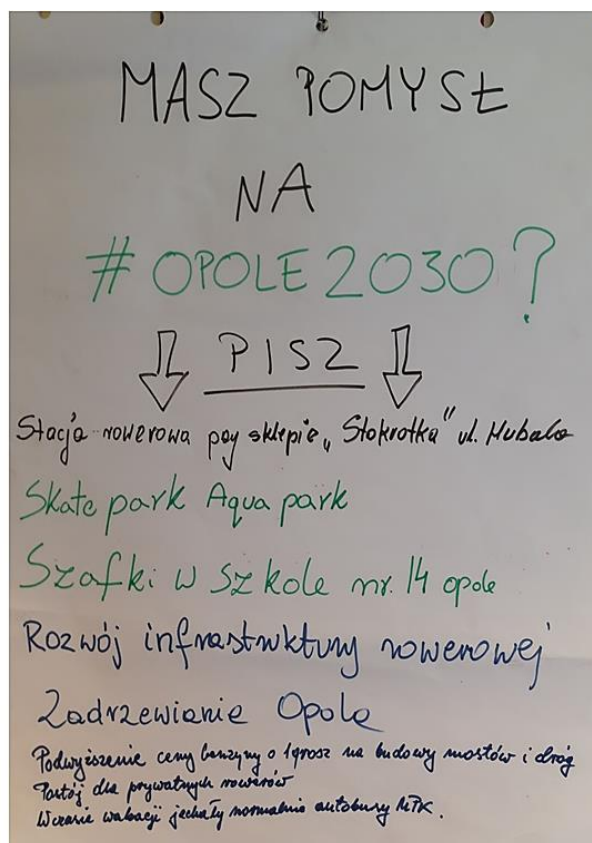 MASZ POMYSŁ
NA
#OPOLE2030?
PISZ
Stacja rowerowa pay sklepie „Stokrotka" ul. Hubala
Skate park Aqua park
Szafki w szkole nr. 14 opole
Rozwój infrastruktury rowerowej
Zadrzewianie Opola
Podwyższenie ceny benzyny o 1grosz na budowy mostów i dróg
dla prywatnych rowerów
Wczasie wakacji jechały normalnie autobusy MZK.